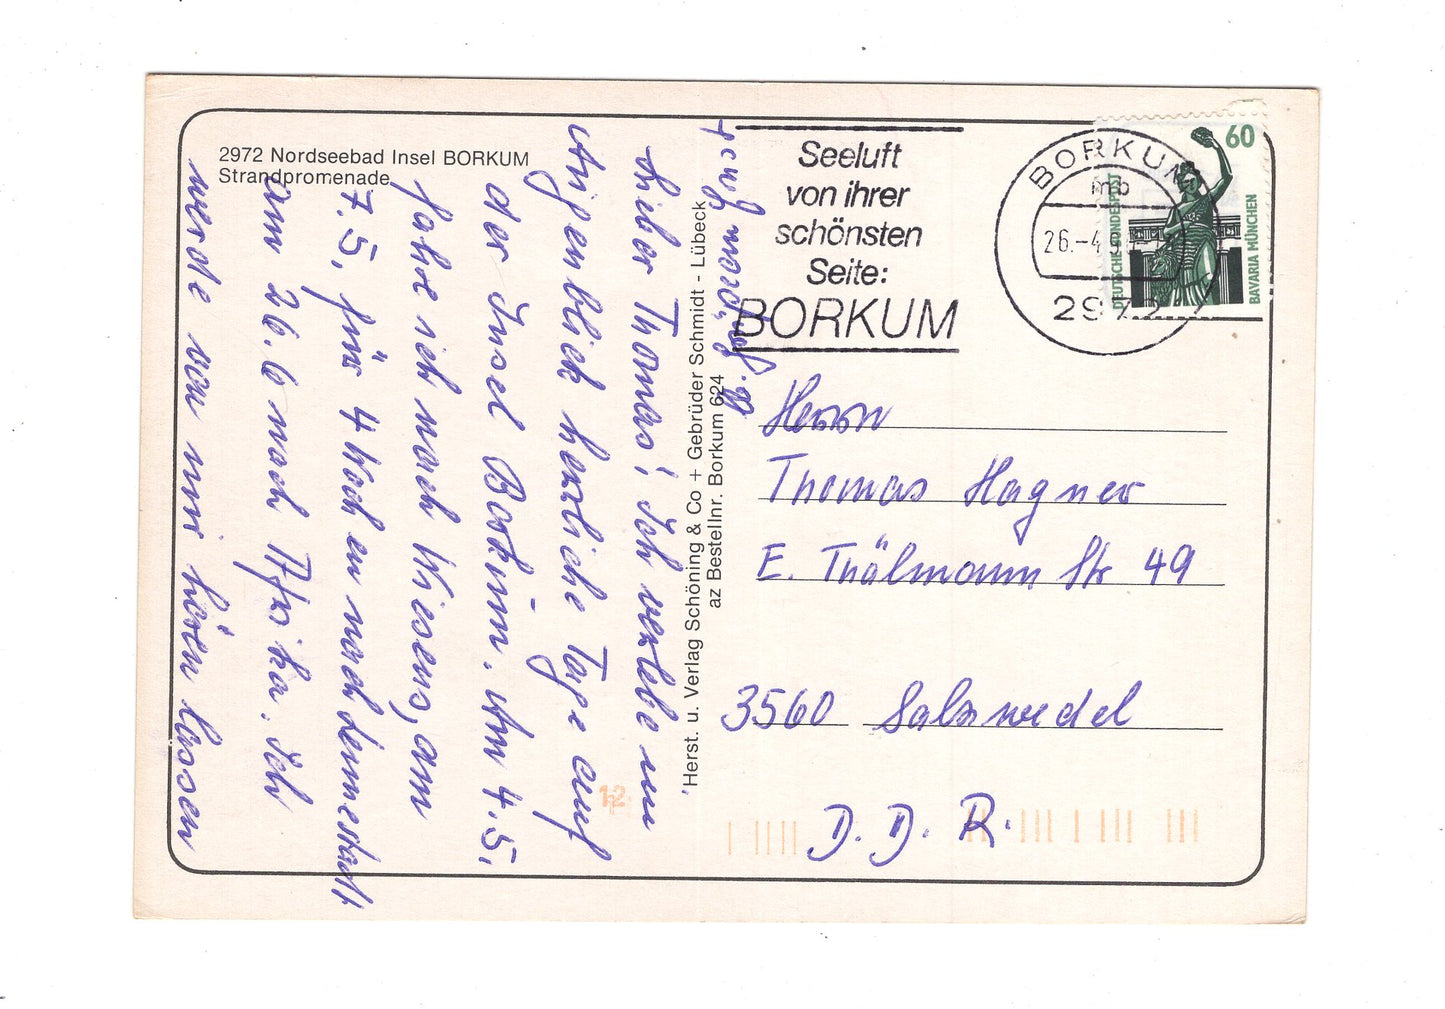 2972 Nordseebad Insel BORKUM
Strandpromenade
Lieber Thomas! Ich verlebe im
Augenblick herzliche Tage auf
der Insel Borkum. Am 4.5.
fahre ich nach Wiesens, am
7.5. für 4 Wochen nach
am 26.6 nach Afrika. Ich
werde von mir hören lassen
Herst. u. Verlag Schöning & Co + Gebrüder Schmidt - Lübeck
az Bestellnr. Borkum 624
Seeluft
von ihrer
schönsten
Seite:
BORKUM
BORKUM
mb
26.-4.
2972
60
DEUTSCHE BUNDESPOST
BAVARIA MÜNCHEN
Herrn
Thomas Hagner
E. Thälmann Str 49
3560 Salzwedel
D. D. R.
12